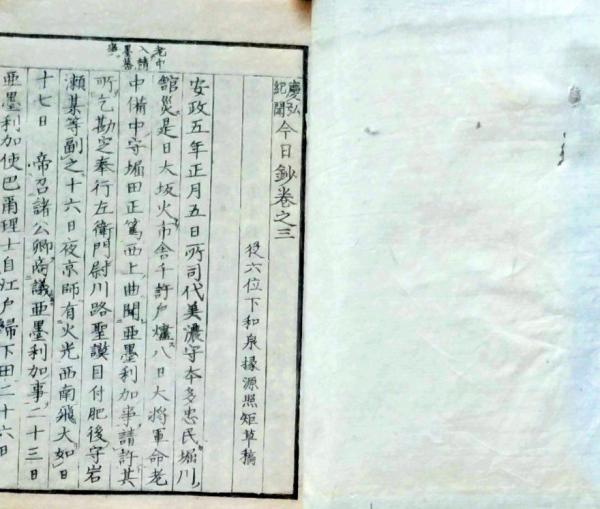 慶弘紀聞 今日鈔卷之三
從六位下和泉掾源照矩草稿
安政五年正月五日所司代美濃守本多忠民堀川
館災是日大坂火市舍千許戶爐八日大將軍命老
中備中守堀田正篤西上曲聞亜墨利加事請許其
所乞勘定奉行左衛門尉川路聖謨目付肥後守岩
瀬某等副之十六日夜京師有火光西南飛大如日
十七日 帝召諸公卿商議亜墨利加事二十三日
亜墨利加使巴爾理士自江戶歸下田二十六日
老中
入請
墨墓